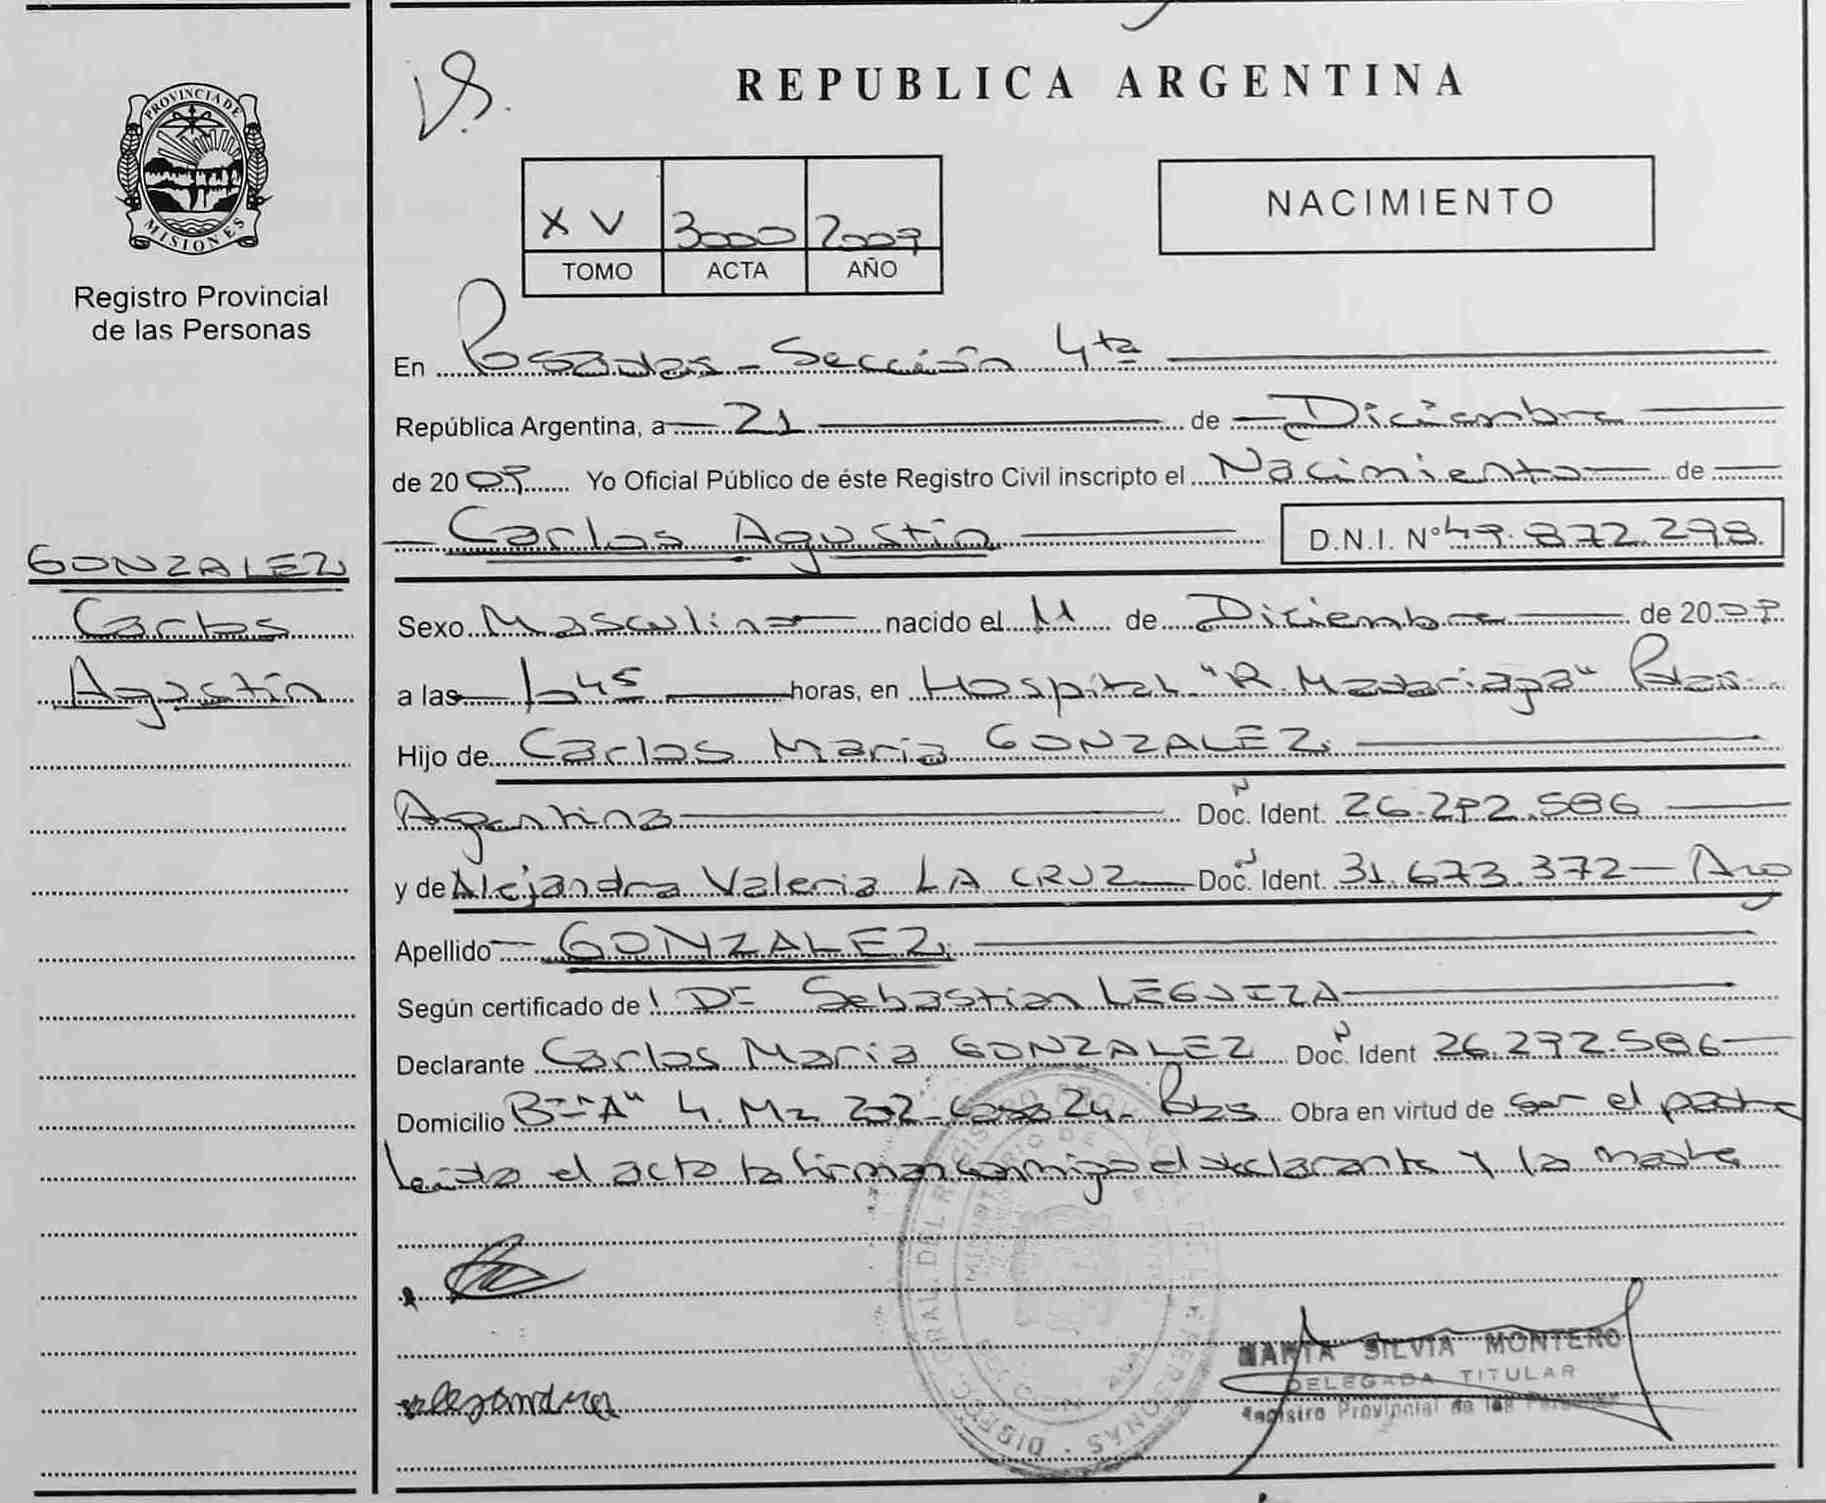 V.S.
REPUBLICA ARGENTINA
PROVINCIA DE
MISIONES
Registro Provincial
de las Personas
XV 3000 2009
TOMO ACTA AÑO
NACIMIENTO
En Posadas - Sección 4ta
República Argentina, a 21 de Diciembre
de 2009 Yo Oficial Público de éste Registro Civil inscripto el Nacimiento de
Carlos Agustín D.N.I. Nº 49.872.298
GONZALEZ
Carlos
Agustín
Sexo Masculino nacido el 11 de Diciembre de 2009
a las 1 45 horas, en Hospital "R. Madariaga" Pdas.
Hijo de Carlos Maria GONZALEZ
Argentina Doc. Ident. 26.292.586
y de Alejandra Valeria LA CRUZ Doc. Ident. 31.673.372 - Arg
Apellido GONZALEZ
Según certificado de: Sebastian LEGUIZA
Declarante Carlos Maria GONZALEZ Doc. Ident 26.292.586
Domicilio Bº "A" 4. Mz 202 - Casa 24 - Pdas Obra en virtud de ser el padre
Leída el acta la firman conmigo el declarante y la madre
MARTA SILVIA MONTERO
DELEGADA TITULAR
Registro Provincial de las Personas
Alejandra